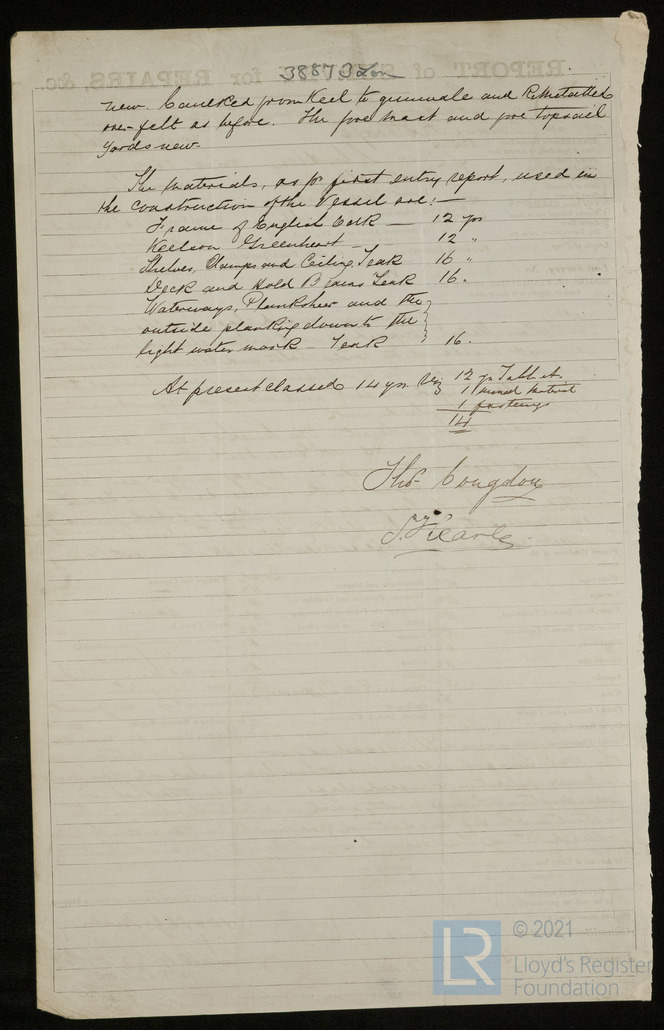 38873 Lon
new. Caulked from Keel to gunwale and Remetalled
over felt as before. The fore mast and fore topsail
yards new.
The materials, as pr first entry report, used in
the construction of the vessel are:—
Frame of English Oak — 12 yrs
Keelson Greenheart — 12 "
Shelves, Clamps and Ceiling Teak 16 "
Deck and Hold Beams Teak 16.
Waterways, Planksheer and the
outside planking down to the
light water mark Teak 16.
At present classed 14 yrs viz 12 yrs Table A.
1 mixed material
1 fastenings
14
Thos Congdon
J. Pearle
REPORT of for REPAIRS, &c
© 2021
LR
Lloyd's Register
Foundation